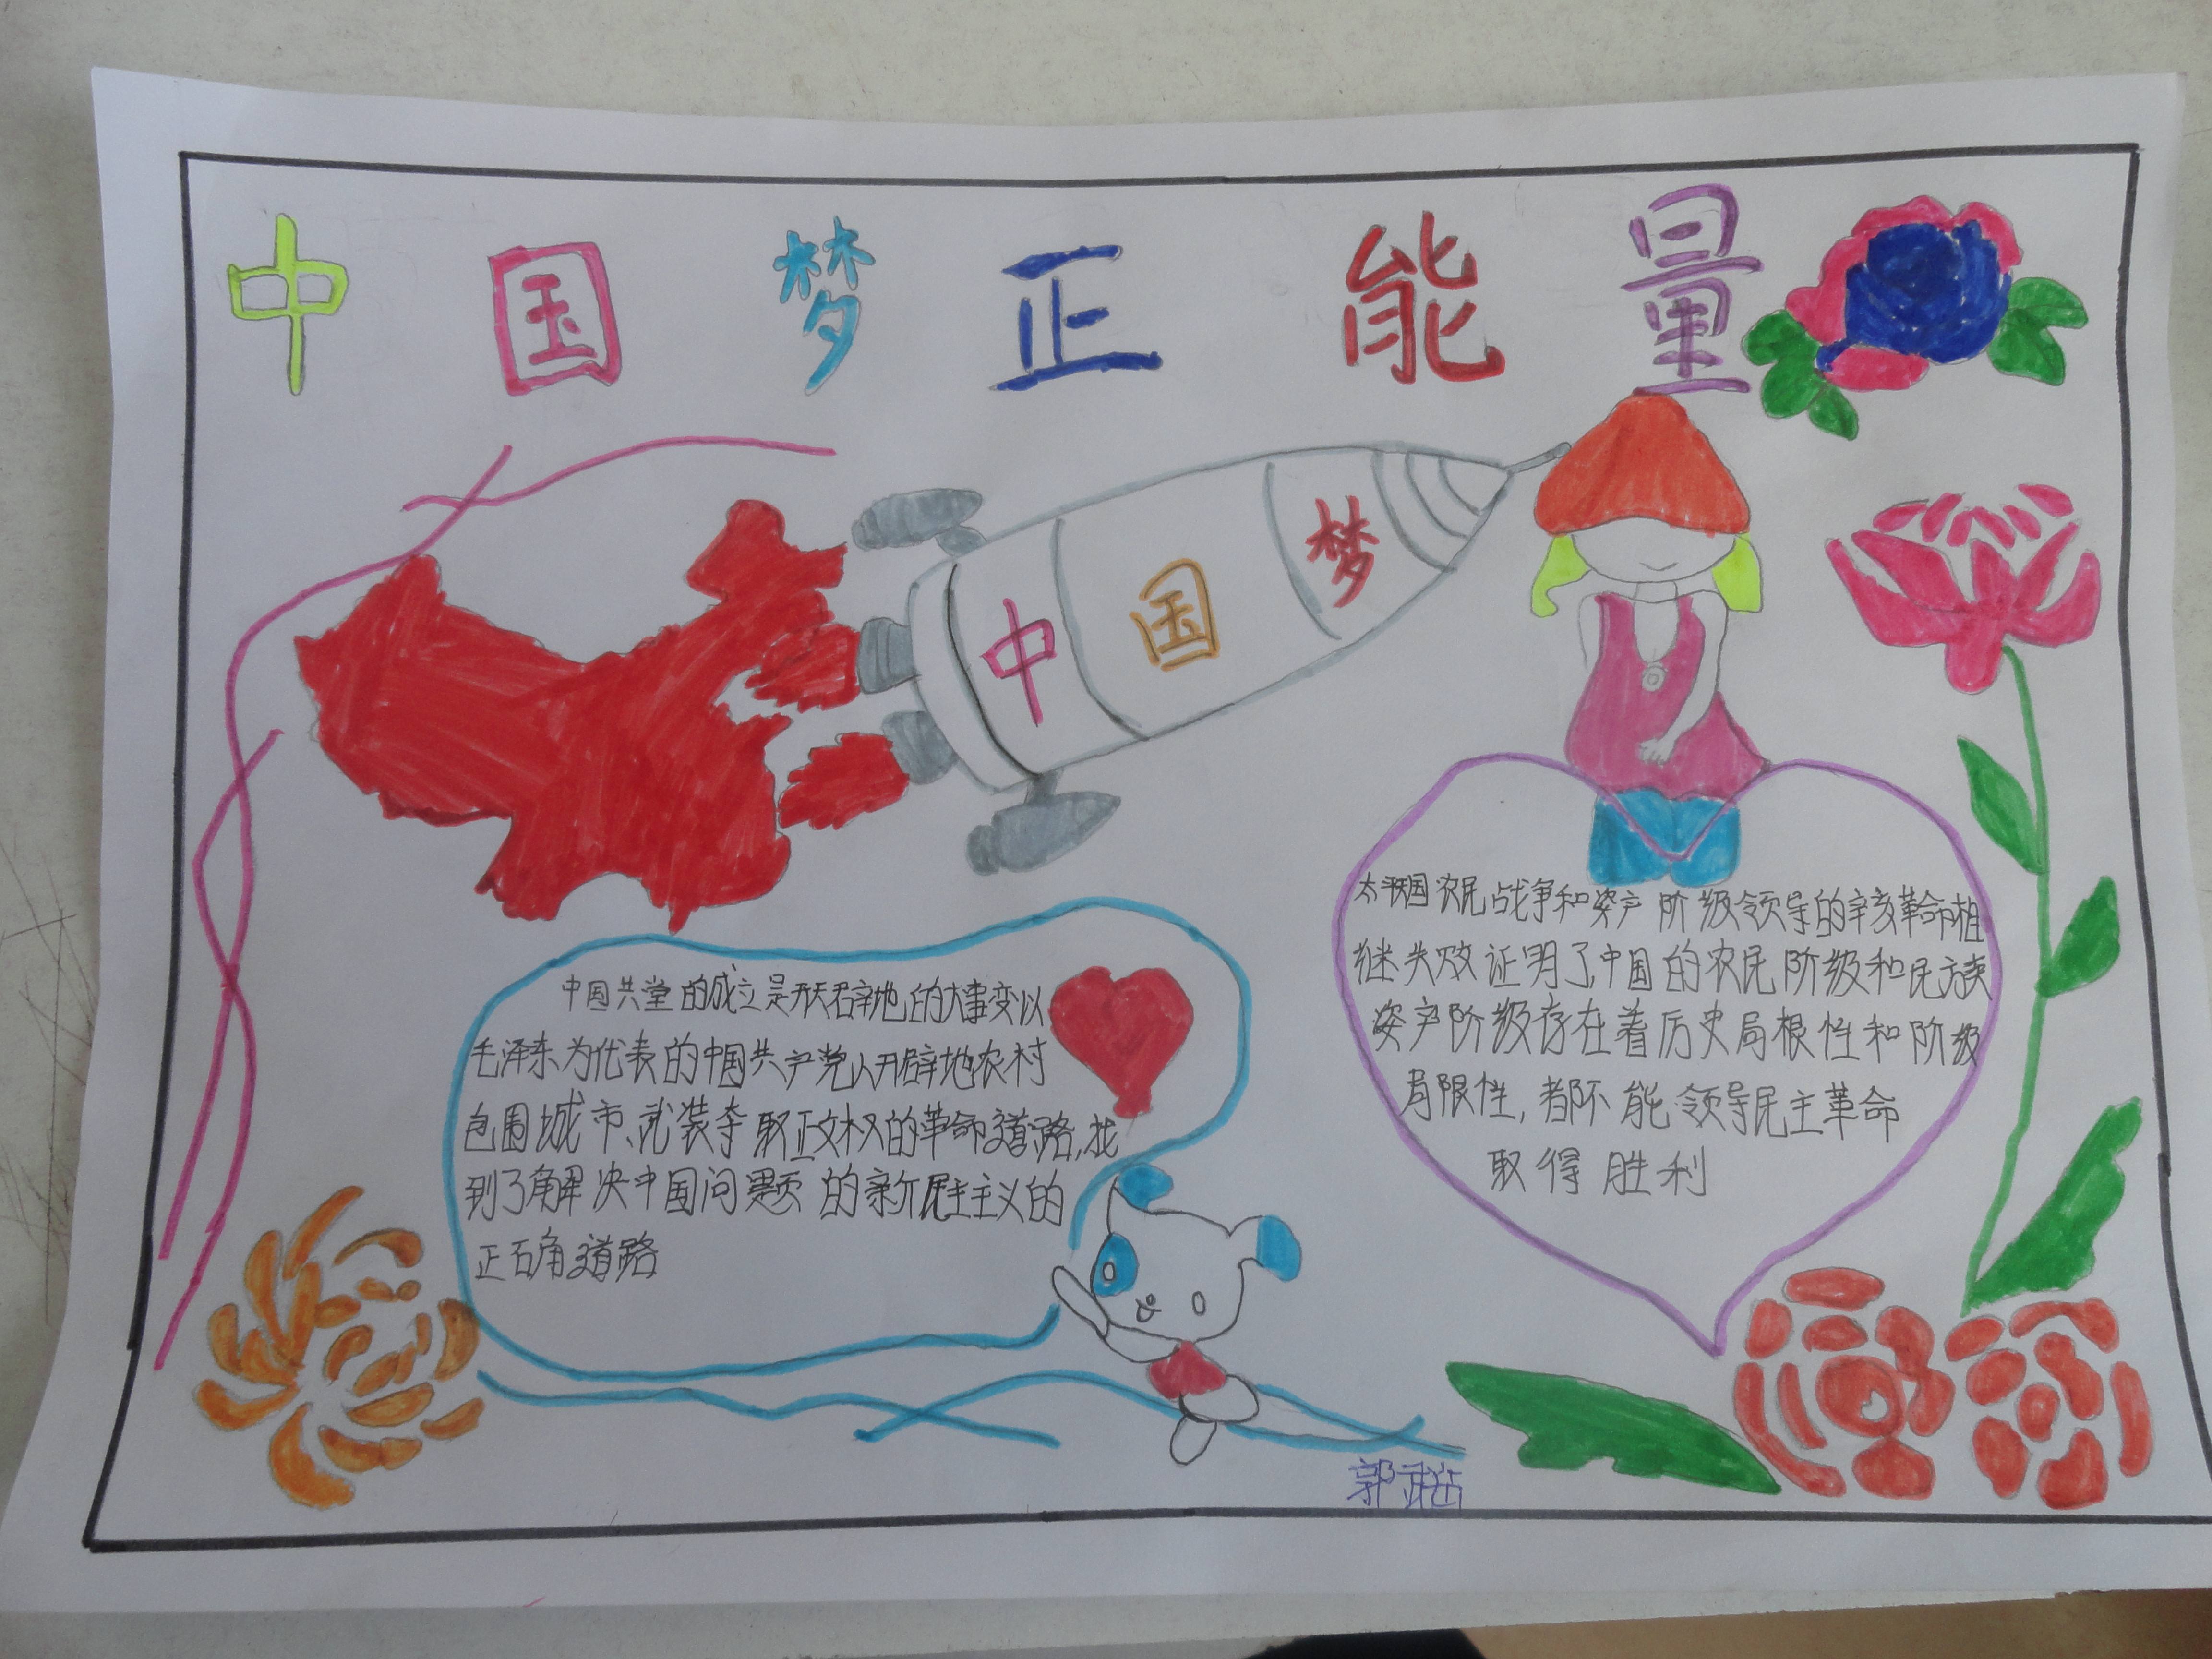 中国梦正能量
中国梦
太平天国农民战争和资产阶级领导的辛亥革命相
继失败证明了中国的农民阶级和民族
资产阶级存在着历史局根性和阶级
局限性,都不能领导民主革命
取得胜利
中国共党的成立是开天辟地的大事变以
毛泽东为代表的中国共产党人开辟地农村
包围城市、武装夺取正文权的革命道路,找
到了解决中国问题的新民主主义的
正确道路
郭